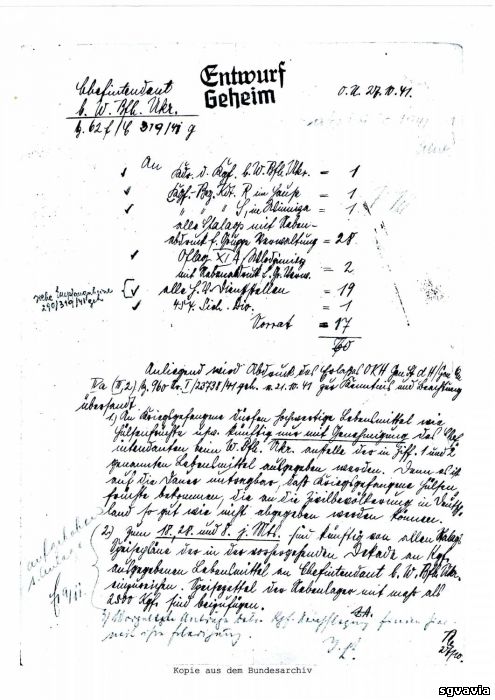 Entwurf
Geheim
Chefintendant
b. W. Bfh. Ukr.
O.U. 27.10.41.
Az. 62 f/C 319/41 g
An
Kdr. d. Kgf. b. W. Bfh. Ukr. = 1
Kgf.-Bez. Kdt. R im Hause = 1
" " " S, in Winniza = 1
alle Stalags mit Neben-
abdruck f. Gruppe Verwaltung = 28
Oflag XI A, Wlodzimierz
mit Nebenabdruck f. Gr. Verw. = 2
alle H.V. Dienststellen = 19
454. Sich. Div. = 1
Vorrat = 17
70
290/319/41 geh
Anliegend wird Abdruck des Erlasses OKH Gen St d H/Gen Qu
IV a (III,2) Az. 960 Nr. I/23738/41 geh. v. 21.10.41 zur Kenntnis und Beachtung
übersandt.
1) An Kriegsgefangene dürfen hochwertige Lebensmittel wie
Hülsenfrüchte usw. künftig nur mit Genehmigung des Chef
intendanten beim W. Bfh. Ukr. anstelle der in Ziff. 1 und 2
genannten Lebensmittel ausgegeben werden. Denn es ist
auf die Dauer untragbar, daß Kriegsgefangene Hülsen
früchte bekommen, die an die Zivilbevölkerung in Deutsch
land so gut wie nicht abgegeben werden können.
2.) Zum 18. 28. und 8. j. Mts. sind künftig von allen Stalags
Speisepläne der in der vorhergehenden Dekade an Kgf.
ausgegebenen Lebensmittel an Chefintendant b. W. Bfh. Ukr.
einzureichen. Speisezettel der Nebenlager mit mehr als
2500 Kgf. sind beizufügen.
3) Vorgelegte Anträge betr. Kgf. Verpflegung finden hier
mit ihre Erledigung.
27/10.
Kopie aus dem Bundesarchiv
sgvavia